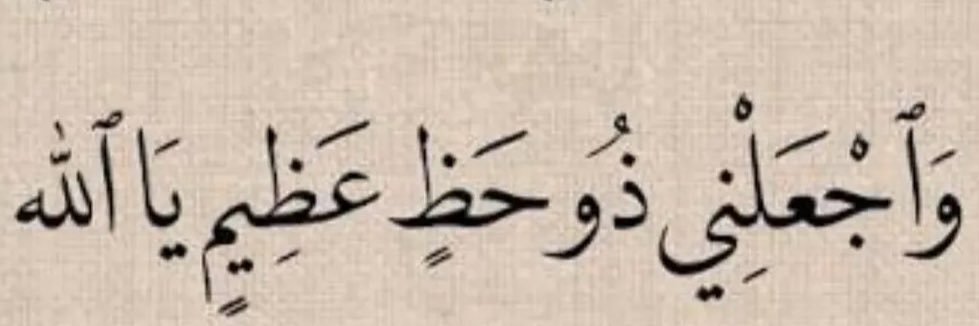 وَٱجْعَلْنِي ذُو حَظٍ عَظِيمٍ يَا ٱللّٰه